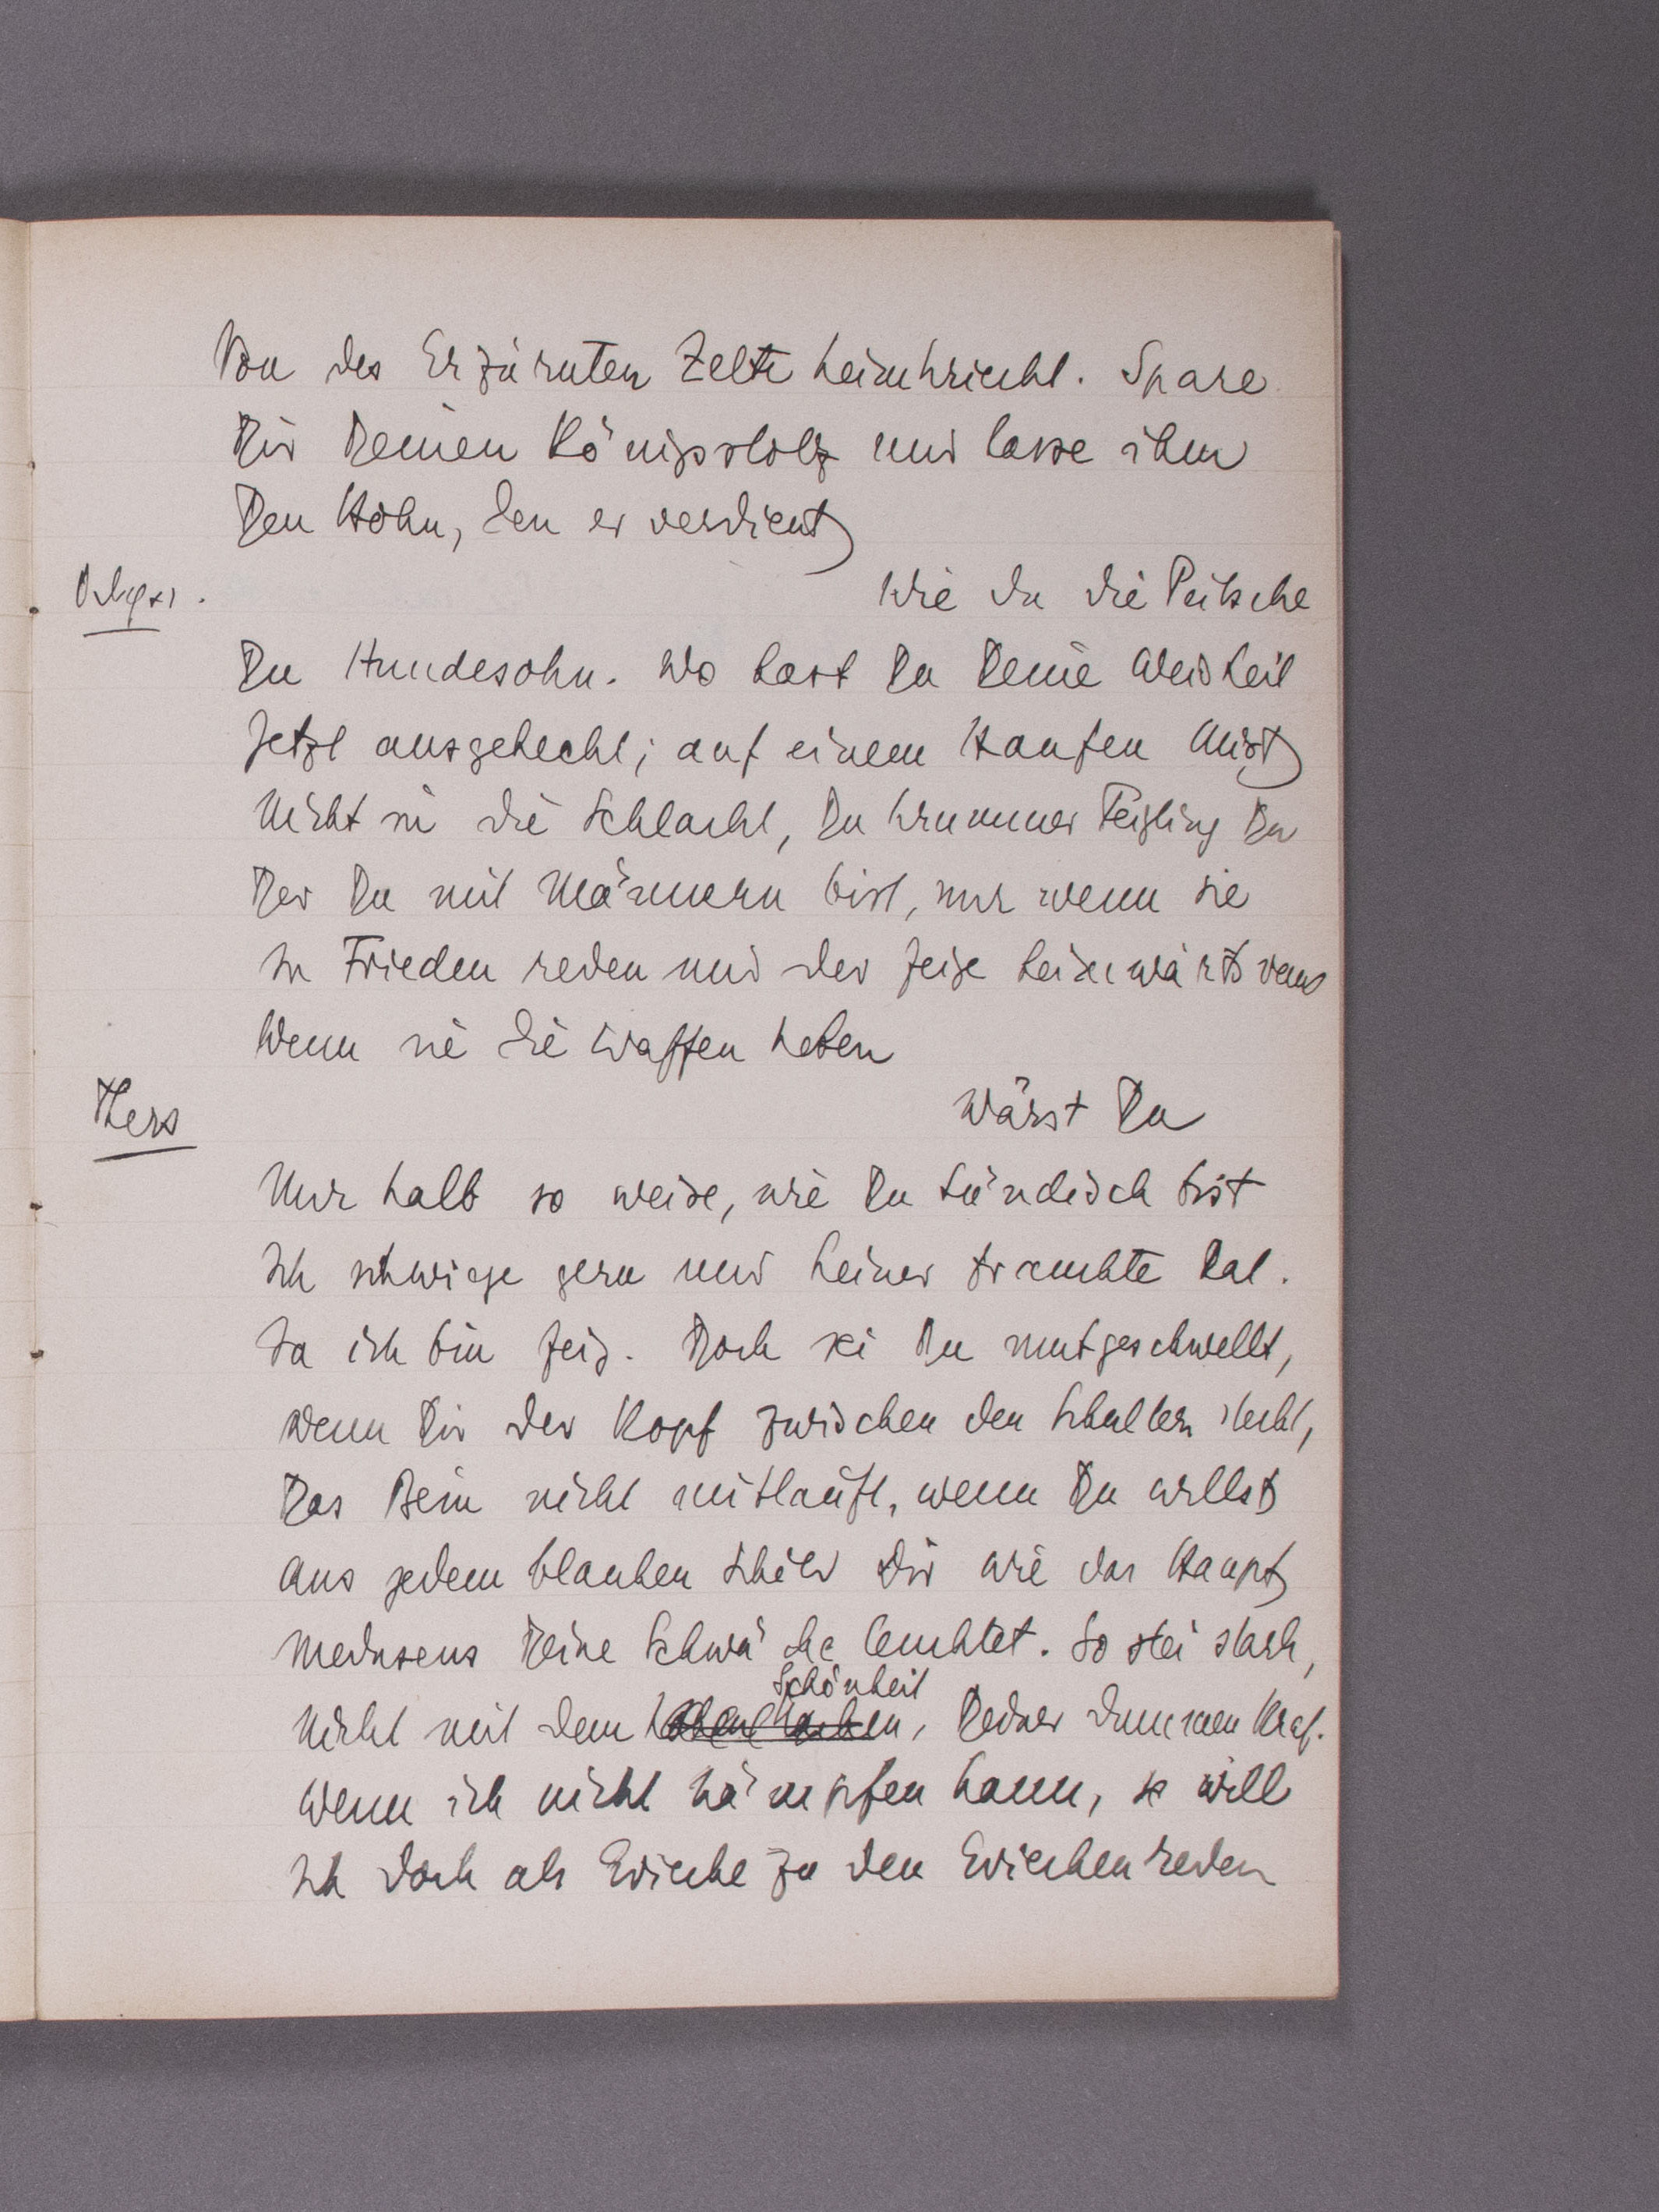 Von des Erzürnten Zelte heimkriecht. Spare
Dir Deinen Königsstolz und lasse ihm
Den Hohn, den er verdient
Odyss.
Wie du die Peitsche
Du Hundesohn. Wo hast Du Deine Weisheit
Jetzt ausgeheckt; auf einem Haufen Mist
Nicht in die Schlacht, Du krummer Feigling Du
Der Du mit Männern bist, nur wenn sie
In Frieden reden und der feige heimwärts
Wenn sie die Waffen heben
Thers
Wärst Du
Nur halb so weise, wie Du hündisch bist
Ich schwiege gern und keiner brauchte Rat.
Ja ich bin feig. Doch sei Du mutgeschwellt,
wenn Dir der Kopf zwischen den Schultern steckt,
Das Bein nicht mitläuft, wenn Du willst
Aus jedem blanken Schild Dir wie das Haupt
Medusens Deine Schwäche leuchtet. So sei stark,
Schönheit
Nicht mit dem, Deiner dummen Kraf.
Wenn ich nicht kämpfen kann, so will
Ich doch als Grieche zu den Griechen reden